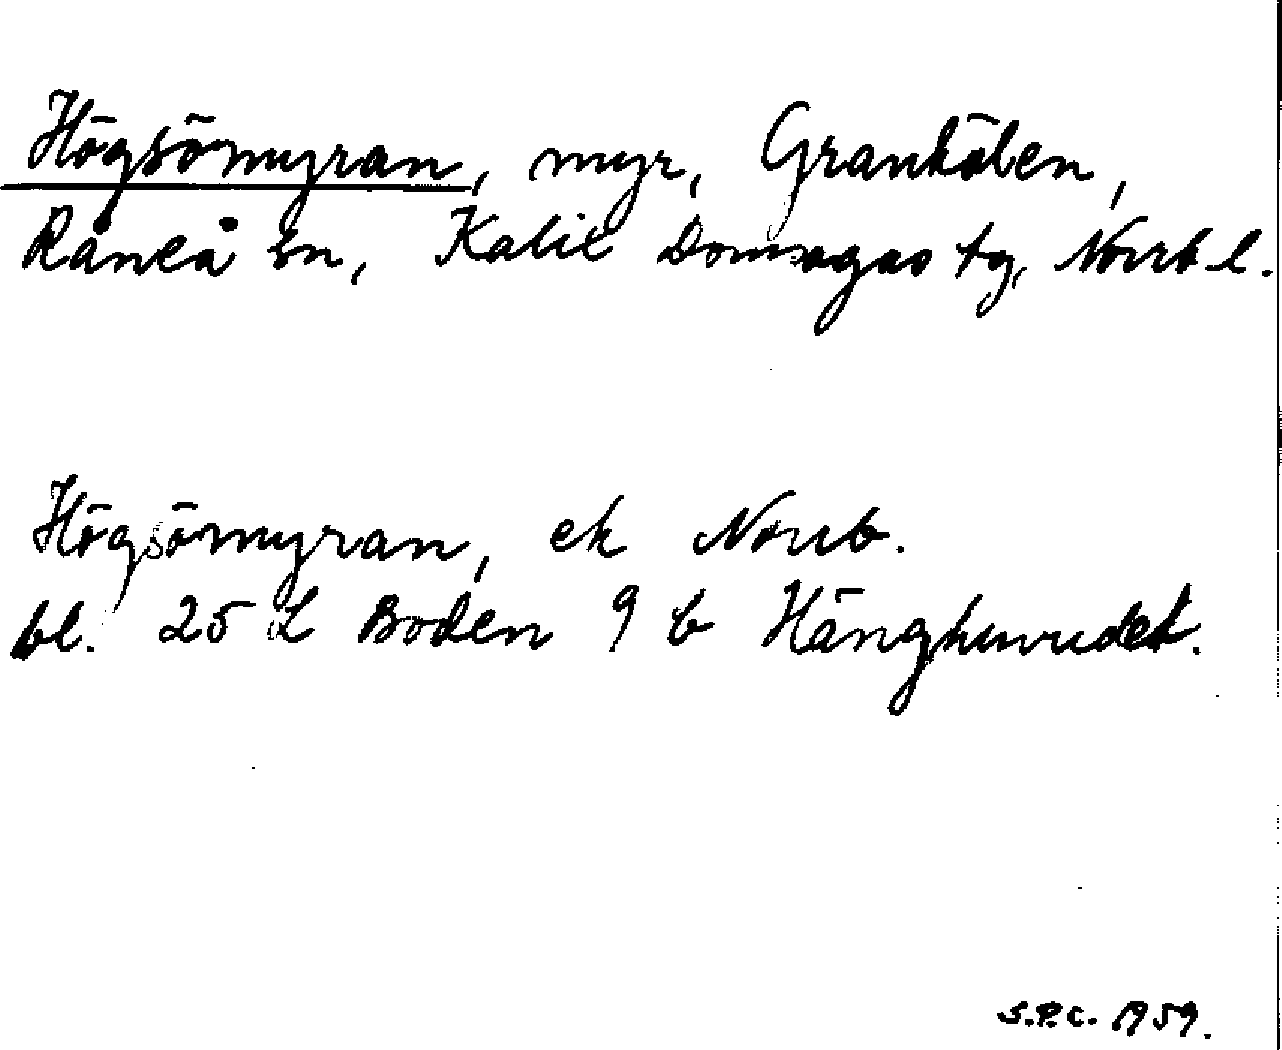 Högsömyran, myr, Grankölen,
Råneå sn, Kalix Domsagas tg, Norrb l.
Högsömyran, ek Norrb.
bl. 25 L Boden 9 b Hänghuvudet.
S.P.C. 1959.